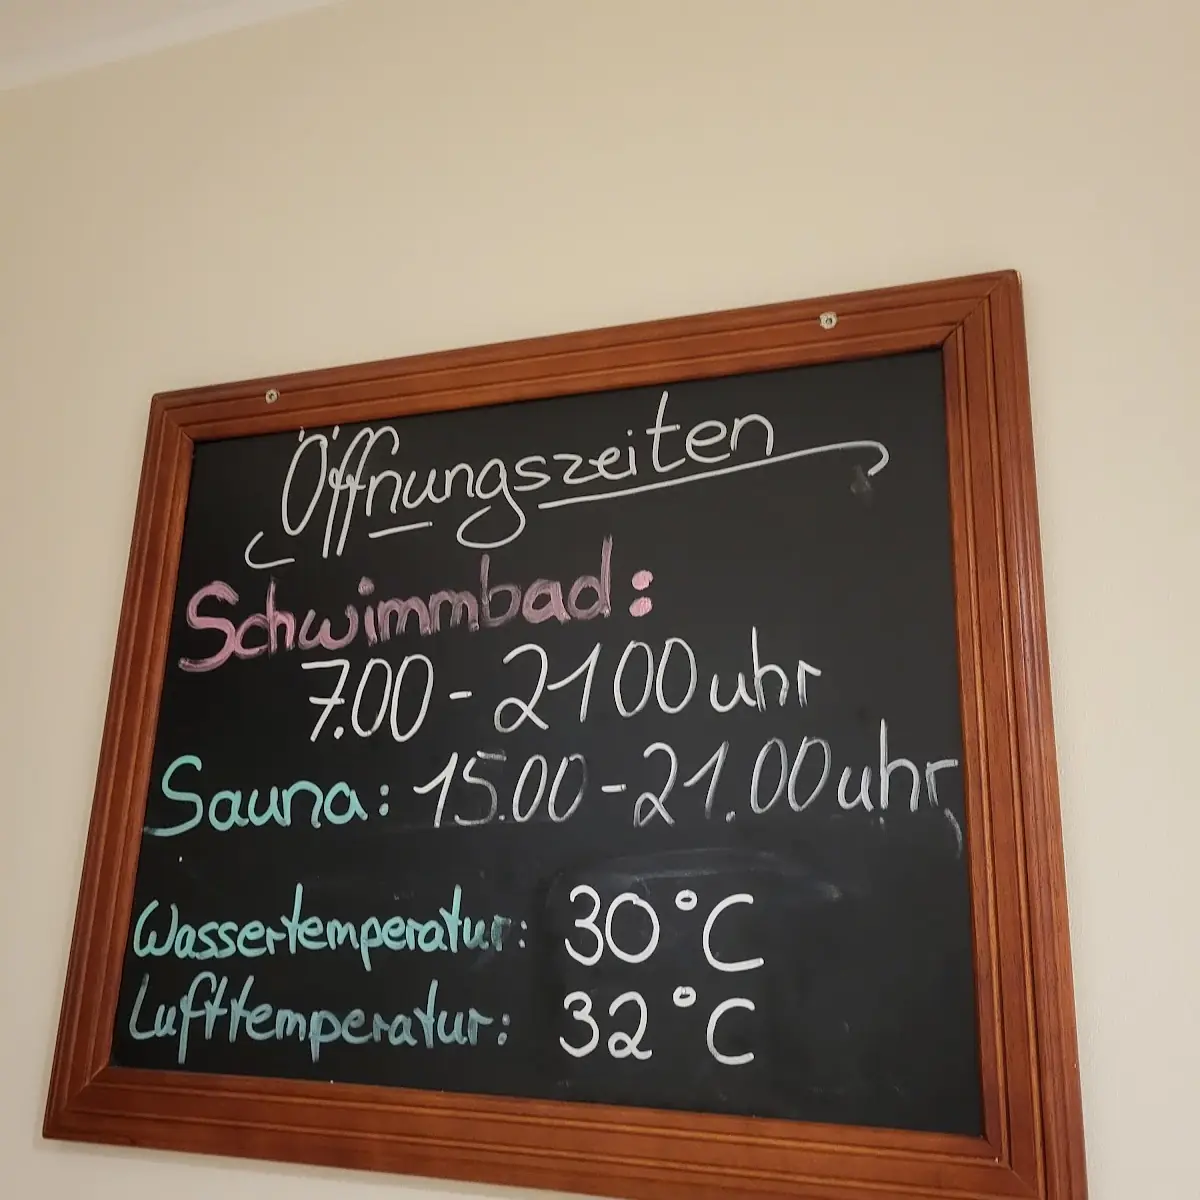 Öffnungszeiten
Schwimmbad:
7.00 - 21 00 uhr
Sauna: 15.00 - 21.00 uhr
Wassertemperatur: 30°C
Lufttemperatur: 32°C